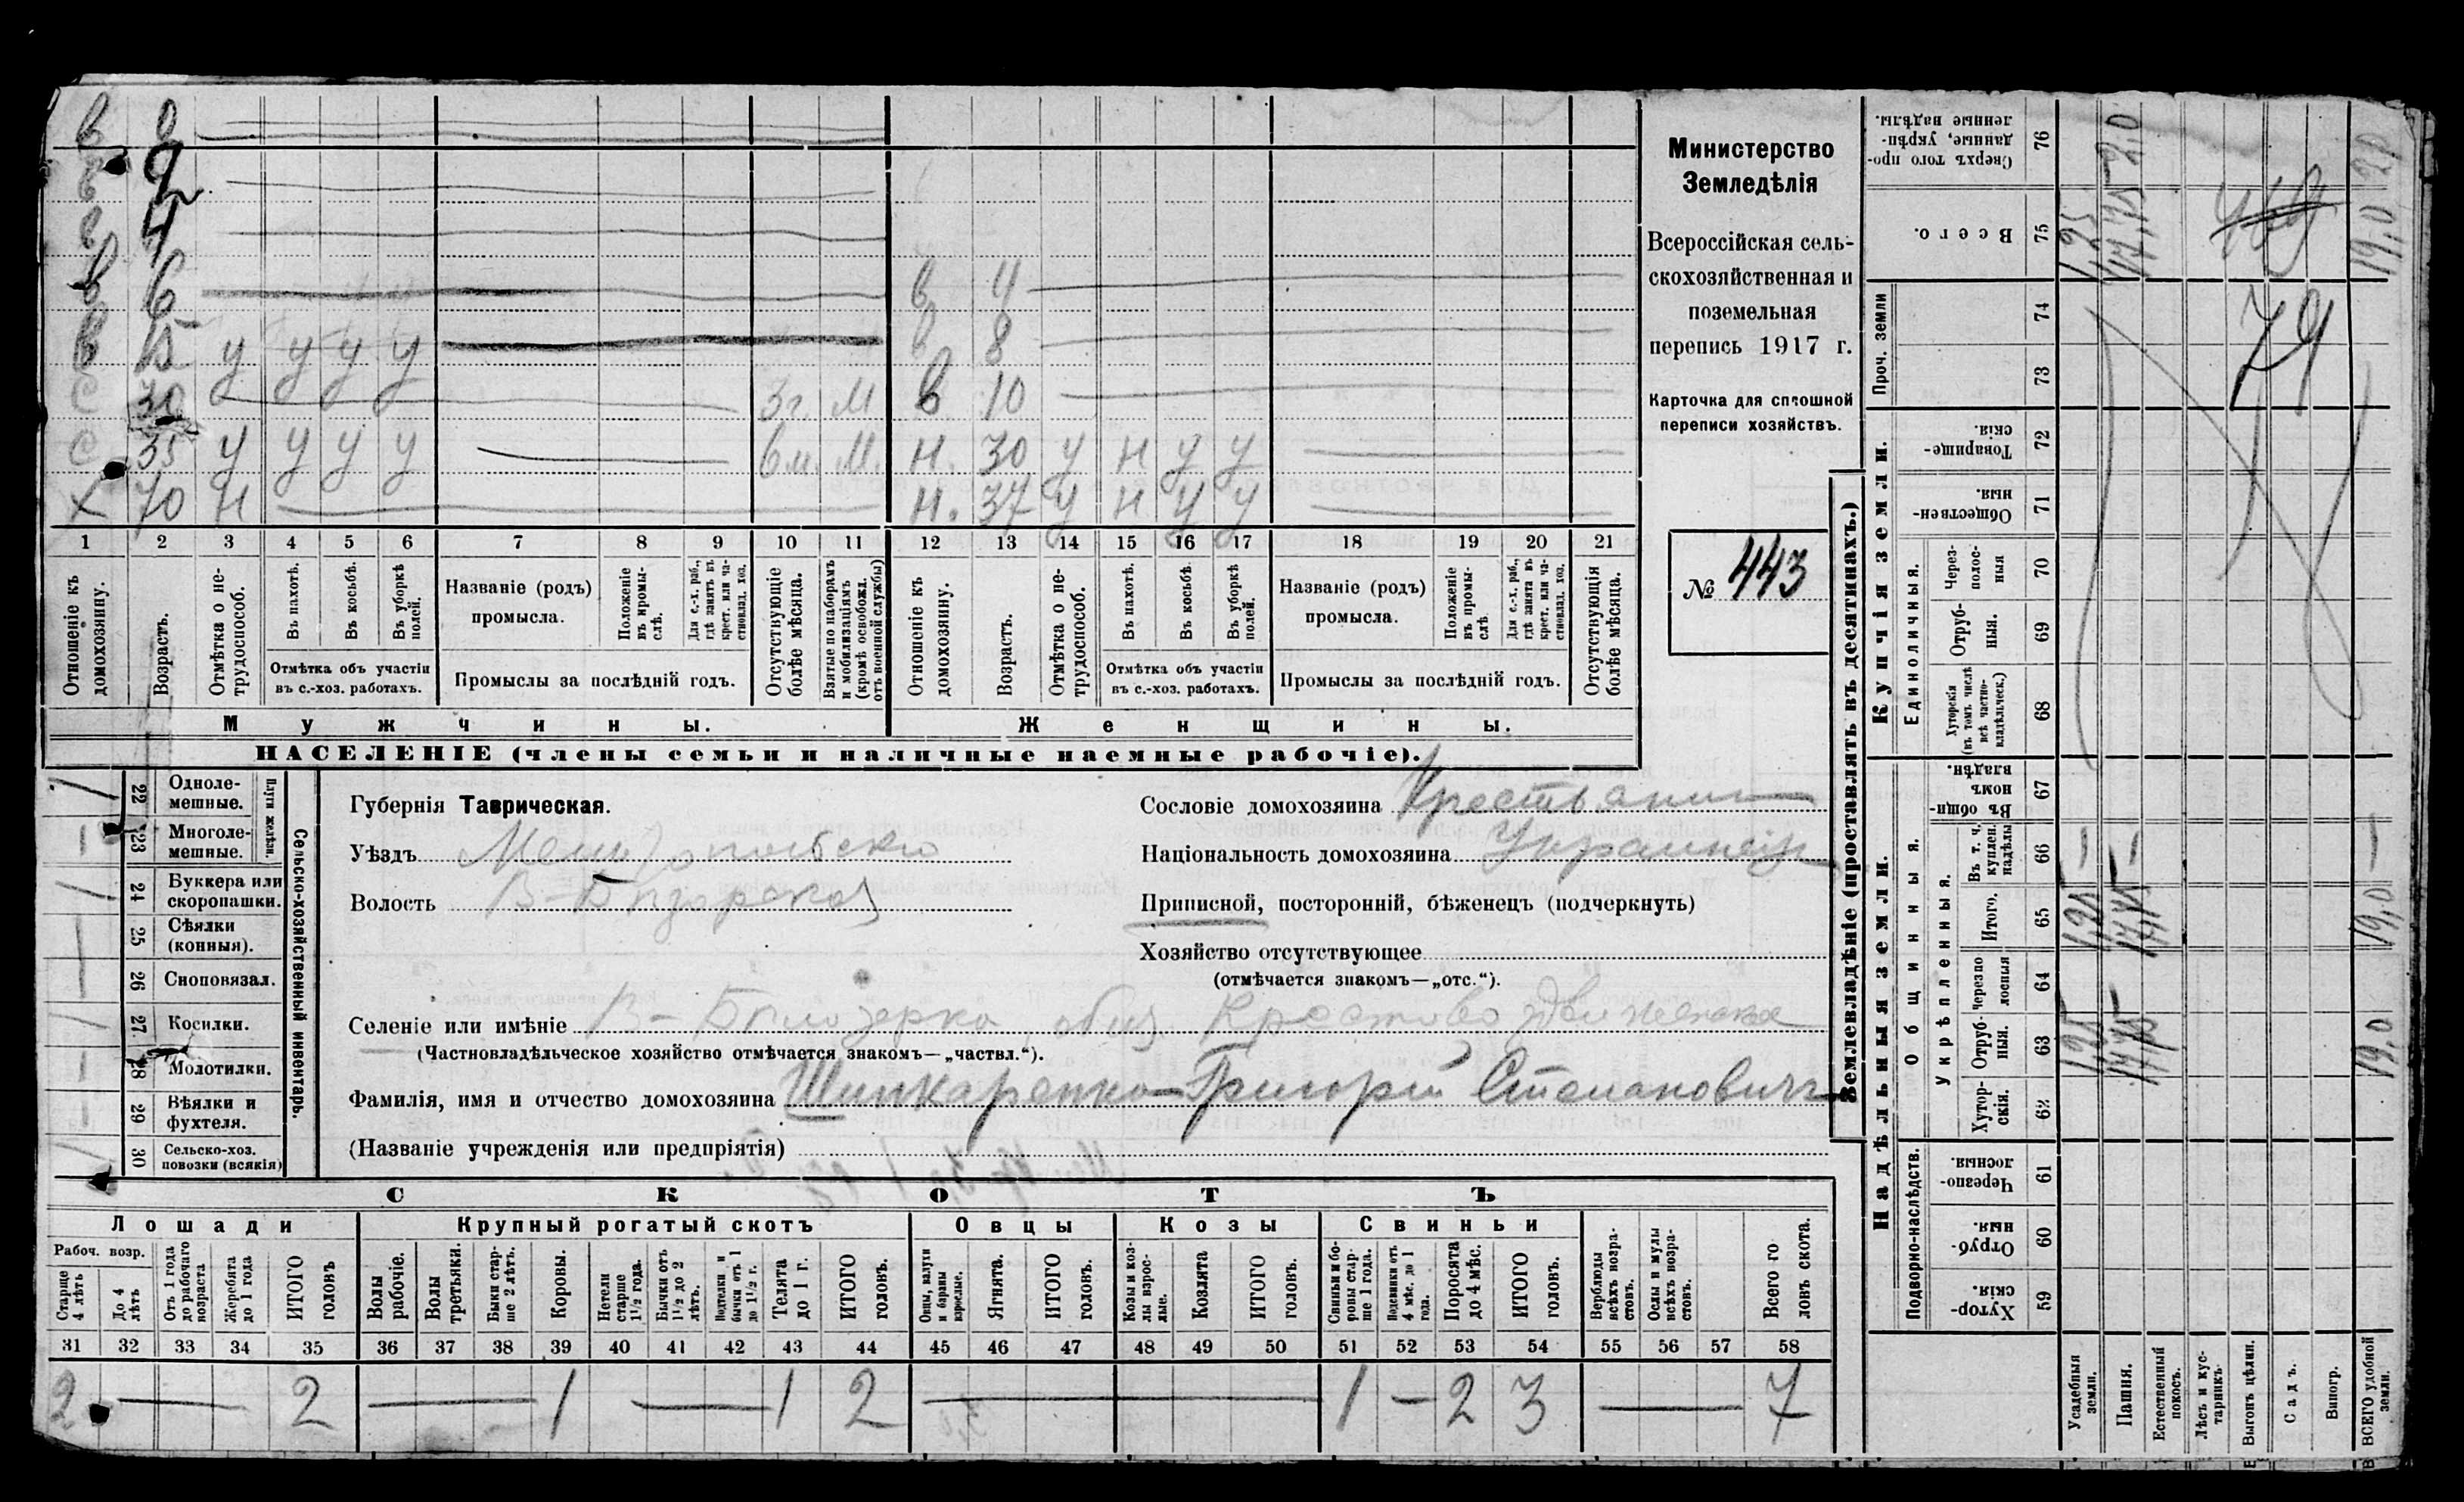 в 0
в 2
в 4
в 6 в 4
в 15 у у у у в 8
с 30 3 г. М в 10
с 35 у у у у 6 м. М. н. 30 у н у у
х 70 н н. 37 у н у у
1 2 3 4 5 6 7 8 9 10 11 12 13 14 15 16 17 18 19 20 21
Отношеніе къ домохозяину.
Возрастъ.
Отмѣтка о нетрудоспособ.
Въ пахотѣ.
Въ косьбѣ.
Въ уборкѣ полей.
Отмѣтка объ участіи
въ с.-хоз. работахъ.
Названіе (родъ)
промысла.
Положеніе въ промыслѣ.
Для с.-х. раб., гдѣ занятъ въ крест. или частновлад. хоз.
Промыслы за послѣдній годъ.
Отсутствующіе болѣе мѣсяца.
Взятые по наборамъ и мобилизаціямъ (кромѣ освобожд. отъ военной службы)
Отношеніе къ домохозяину.
Возрастъ.
Отмѣтка о нетрудоспособ.
Въ пахотѣ.
Въ косьбѣ.
Въ уборкѣ полей.
Отмѣтка объ участіи
въ с.-хоз. работахъ.
Названіе (родъ)
промысла.
Положеніе въ промыслѣ
Для с.-х. раб., гдѣ занята въ крест. или частновлад. хоз.
Промыслы за послѣдній годъ.
Отсутствующія болѣе мѣсяца.
Мужчины.
Женщины.
НАСЕЛЕНІЕ (члены семьи и наличные наемные рабочіе).
Министерство
Земледѣлія
Всероссійская сель-
скохозяйственная и
поземельная
перепись 1917 г.
Карточка для сплошной
переписи хозяйствъ.
№ 443
22 Одноле-
мешные.
23 Многоле-
мешные.
Плуги желѣзн.
24 Буккера или
скоропашки.
25 Сѣялки
(конныя).
26 Сноповязал.
27 Косилки.
28 Молотилки.
29 Вѣялки и
фухтеля.
30 Сельско-хоз.
повозки (всякія)
Сельско-хозяйственный инвентарь.
Губернія Таврическая.
Уѣздъ Мелитопольскій
Волость В-Бѣлозерская
Сословіе домохозяина Крестьянин
Національность домохозяина Украинецъ
Приписной, посторонній, бѣженецъ (подчеркнуть)
Хозяйство отсутствующее
(отмѣчается знакомъ—„отс.“).
Селеніе или имѣніе В-Бѣлозерка общ. Крестовоздвиженска
(Частновладѣльческое хозяйство отмѣчается знакомъ—„частвл.“).
Фамилія, имя и отчество домохозяина Шинкаренко Григорій Степановичъ
(Названіе учрежденія или предпріятія)
СКОТЪ
Лошади
Крупный рогатый скотъ
Овцы
Козы
Свиньи
Рабоч. возр.
Старше 4 лѣтъ
До 4 лѣтъ
Отъ 1 года до рабочаго возраста
Жеребята до 1 года
ИТОГО головъ
Волы рабочіе.
Волы третьяки.
Быки старше 2 лѣтъ.
Коровы.
Нетели старше 1½ года.
Бычки отъ 1½ до 2 лѣтъ.
Подтелки и бычки отъ 1 до 1½ г.
Телята до 1 г.
ИТОГО головъ.
Овцы, валухи и бараны взрослые.
Ягнята.
ИТОГО головъ.
Козы и козлы взрослые.
Козлята
ИТОГО головъ.
Свиньи и боровы старше 1 года.
Подсвинки отъ 4 мѣс. до 1 года.
Поросята до 4 мѣс.
ИТОГО головъ.
Верблюды всѣхъ возрастовъ.
Ослы и мулы всѣхъ возрастовъ.
Всего головъ скота.
31 32 33 34 35 36 37 38 39 40 41 42 43 44 45 46 47 48 49 50 51 52 53 54 55 56 57 58
2 — 2 — 1 — 1 2 — 1 — 2 3 — 7
Землевладѣніе (проставлять въ десятинахъ.)
Купчія земли.
Надѣльныя земли.
Сверхъ того проданные, укрѣпленные надѣлы. 76
Всего. 75
Проч. земли
74
73
Товарищескія. 72
Общественныя. 71
Единоличныя.
Черезполосныя 70
Отрубныя. 69
Хуторскія (въ томъ числѣ всѣ частновладѣльческ.) 68
Общинныя.
Въ общинномъ владѣн. 67
Укрѣпленныя.
Въ т. ч. куплен. надѣлы 66
Итого. 65
Черезполосныя 64
Отрубныя. 63
Хуторскія. 62
Подворно-наслѣдств.
Черезполосныя. 61
Отрубныя. 60
Хуторскія. 59
Усадебныя земли.
Пашня.
Естественный покосъ.
Лѣсъ и кустарникъ
Выгонъ цѣлин.
Садъ.
Виногр.
ВСЕГО удобной земли.
2,0 2,0
1,25 17,75 19,0
79
1,25 17,75 19,0
1,25 17,75 19,0